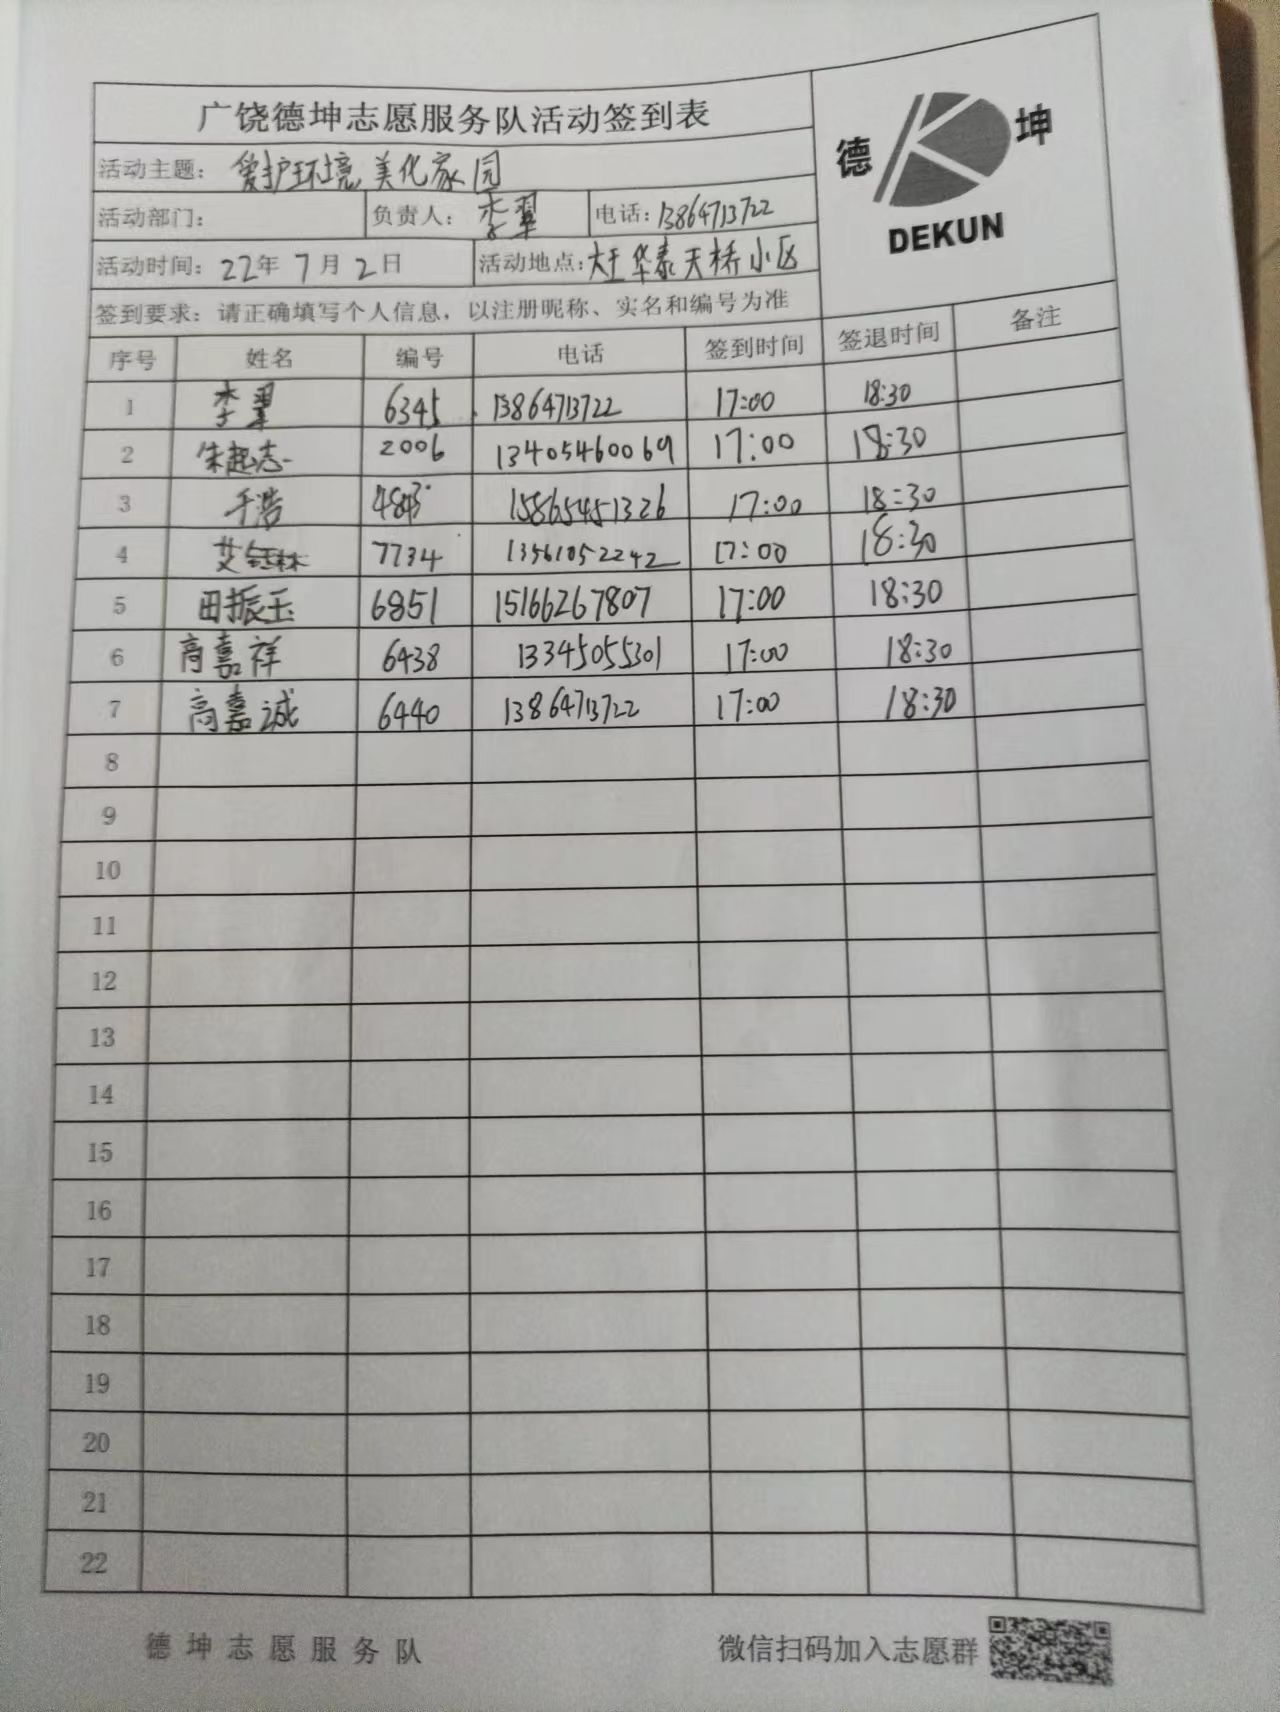 广饶德坤志愿服务队活动签到表
德 坤
DEKUN
活动主题： 爱护环境, 美化家园
活动部门： 负责人： 李翠 电话：13864713722
活动时间：22年 7月 2日 活动地点：大王华泰天桥小区
签到要求：请正确填写个人信息，以注册昵称、实名和编号为准
序号 姓名 编号 电话 签到时间 签退时间 备注
1 李翠 6345 13864713722 17:00 18:30
2 朱起志 2006 13405460069 17:00 18:30
3 于浩 15865451326 17:00 18:30
4 7734 13561052242 17:00 18:30
5 田振玉 6851 15166267807 17:00 18:30
6 高嘉祥 6438 13345055301 17:00 18:30
7 高嘉诚 6440 13864713722 17:00 18:30
8
9
10
11
12
13
14
15
16
17
18
19
20
21
22
德坤志愿服务队 微信扫码加入志愿群